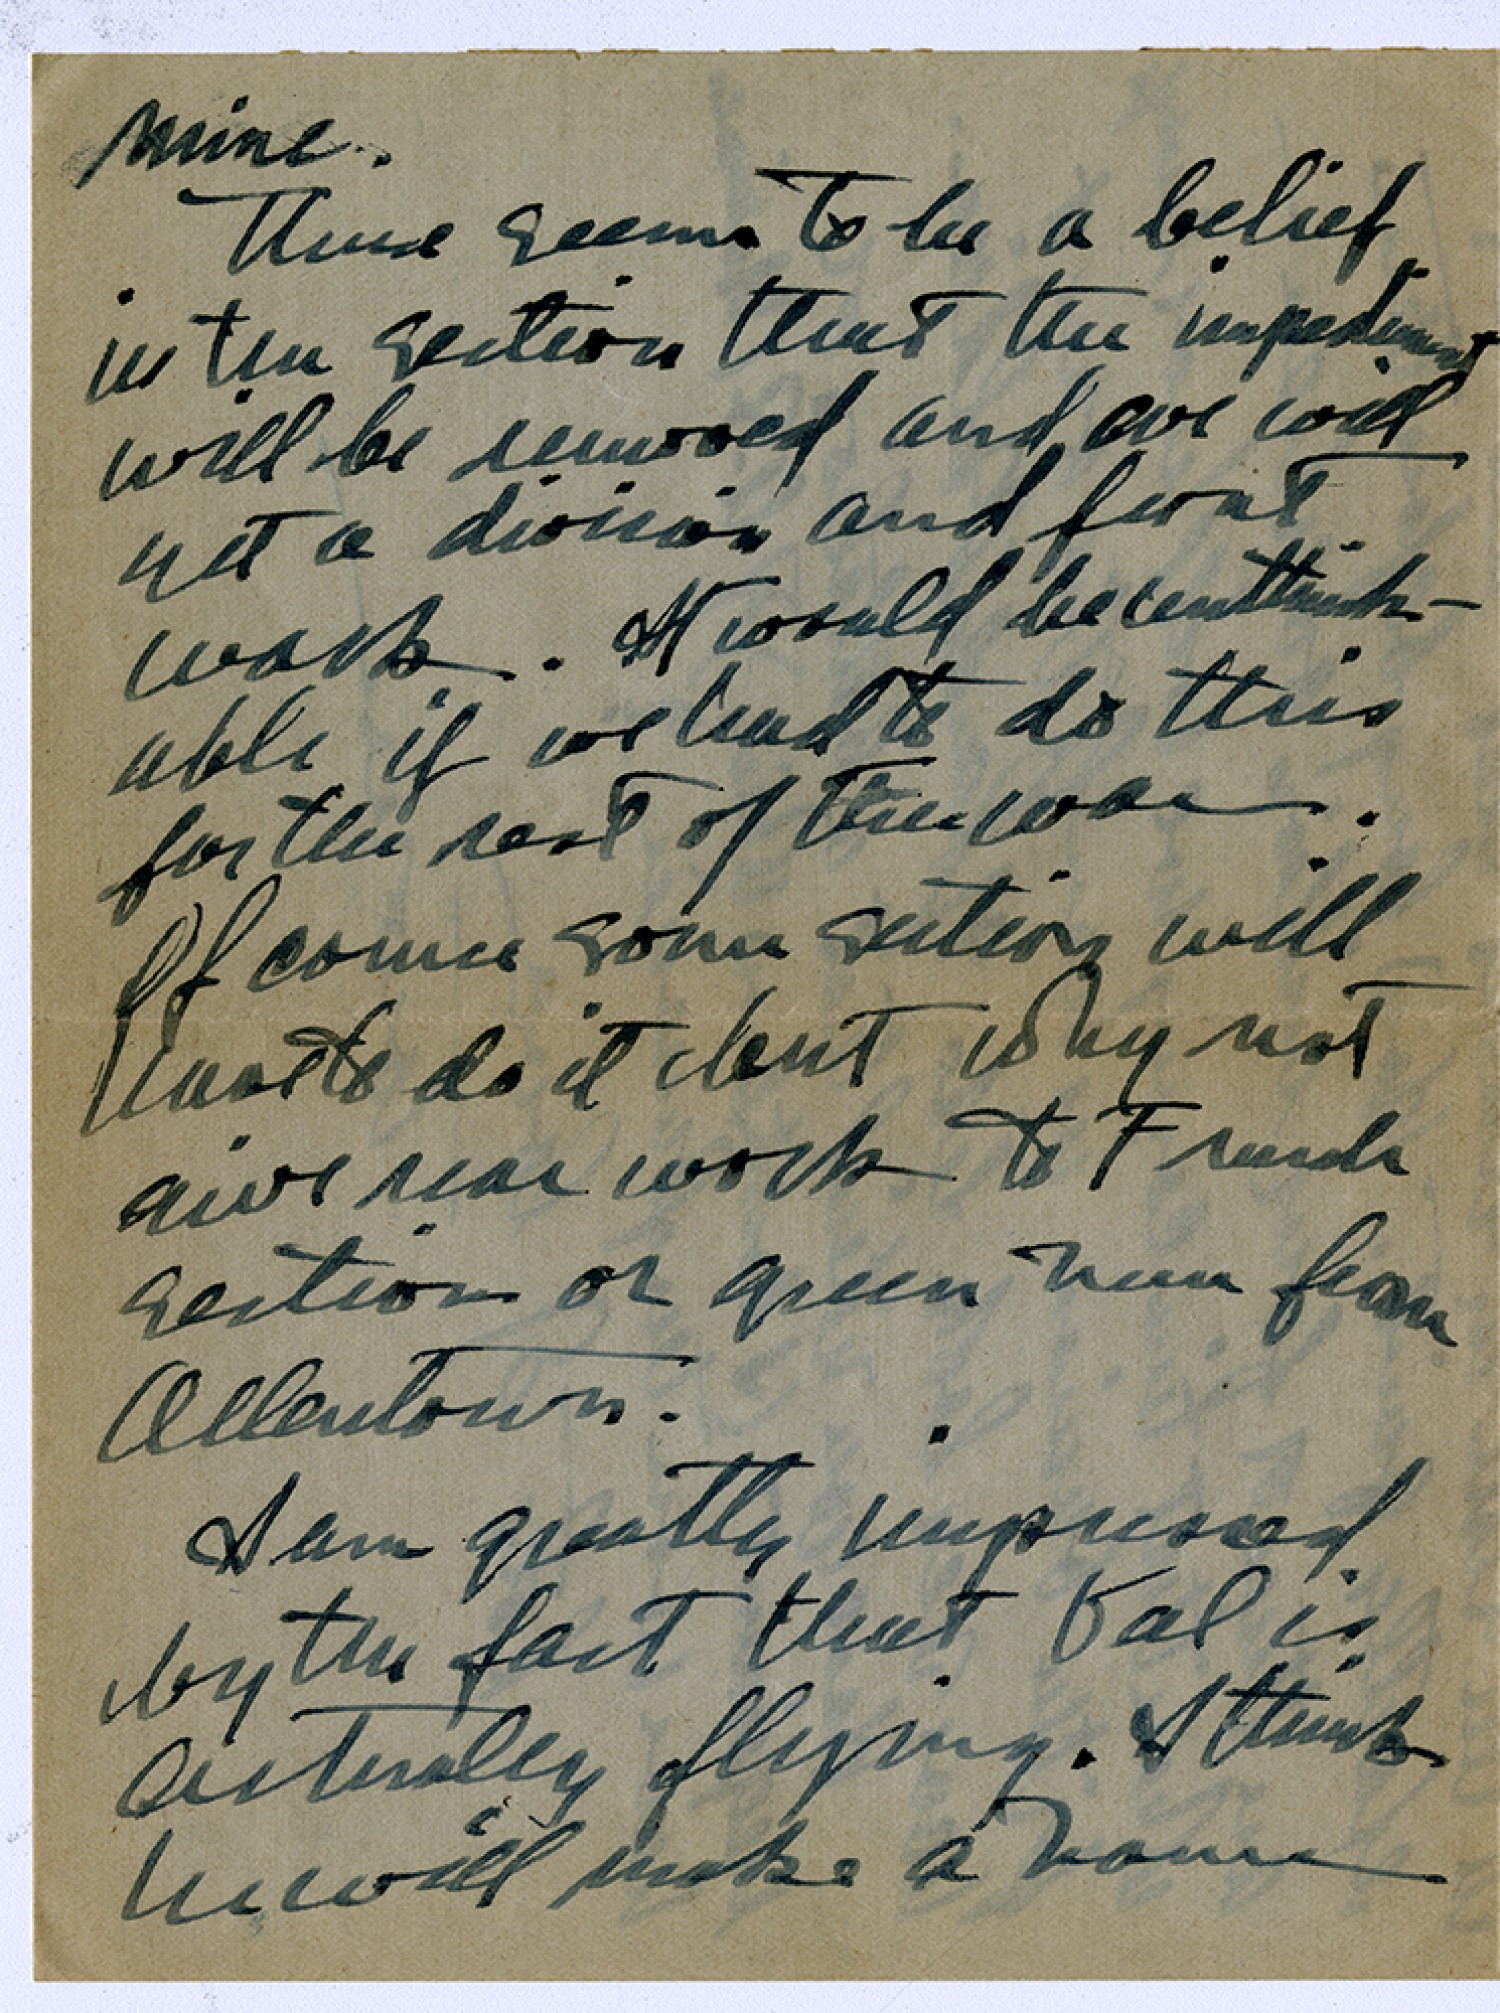 mine.
There seems to be a belief
in the section that the impediment
will be removed and we will
get a division and front
work. It would be unthink-
able if we had to do this
for the rest of the war.
Of course some section will
have to do it but why not
give rear work to French
section or green men from
Allentown.
I am greatly impressed
by the fact that Val is
actually flying. I think
he will make a name